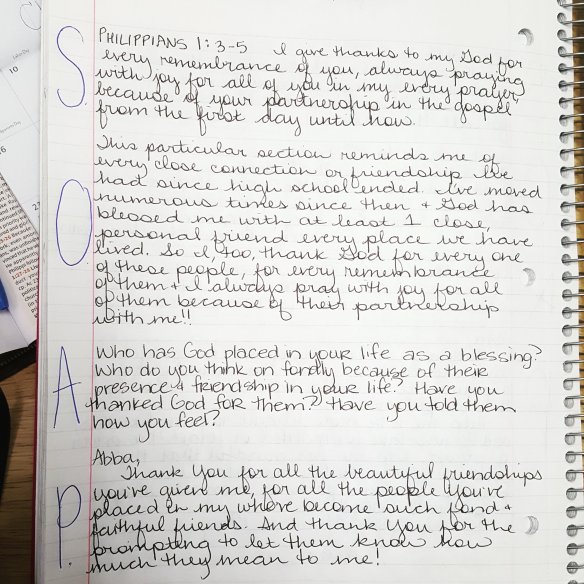 S.
PHILIPPIANS 1:3-5 I give thanks to my God for
every remembrance of you, always praying
with joy for all of you in my every prayer,
because of your partnership in the gospel
from the first day until now.
O
This particular section reminds me of
every close connection or friendship I've
had since high school ended. I've moved
numerous times since then & God has
blessed me with at least 1 close,
personal friend every place we have
lived. So I, too, thank God for every one
of these people, for every remembrance
of them & I always pray with joy for all
of them because of their partnership
with me!!
A
Who has God placed in your life as a blessing?
Who do you think on fondly because of their
presence & friendship in your life? Have you
thanked God for them? Have you told them
how you feel?
P.
Abba,
Thank You for all the beautiful friendships
You've given me, for all the people You've
placed in my where become such fond &
faithful friends. And thank You for the
prompting to let them know how
much they mean to me!
10